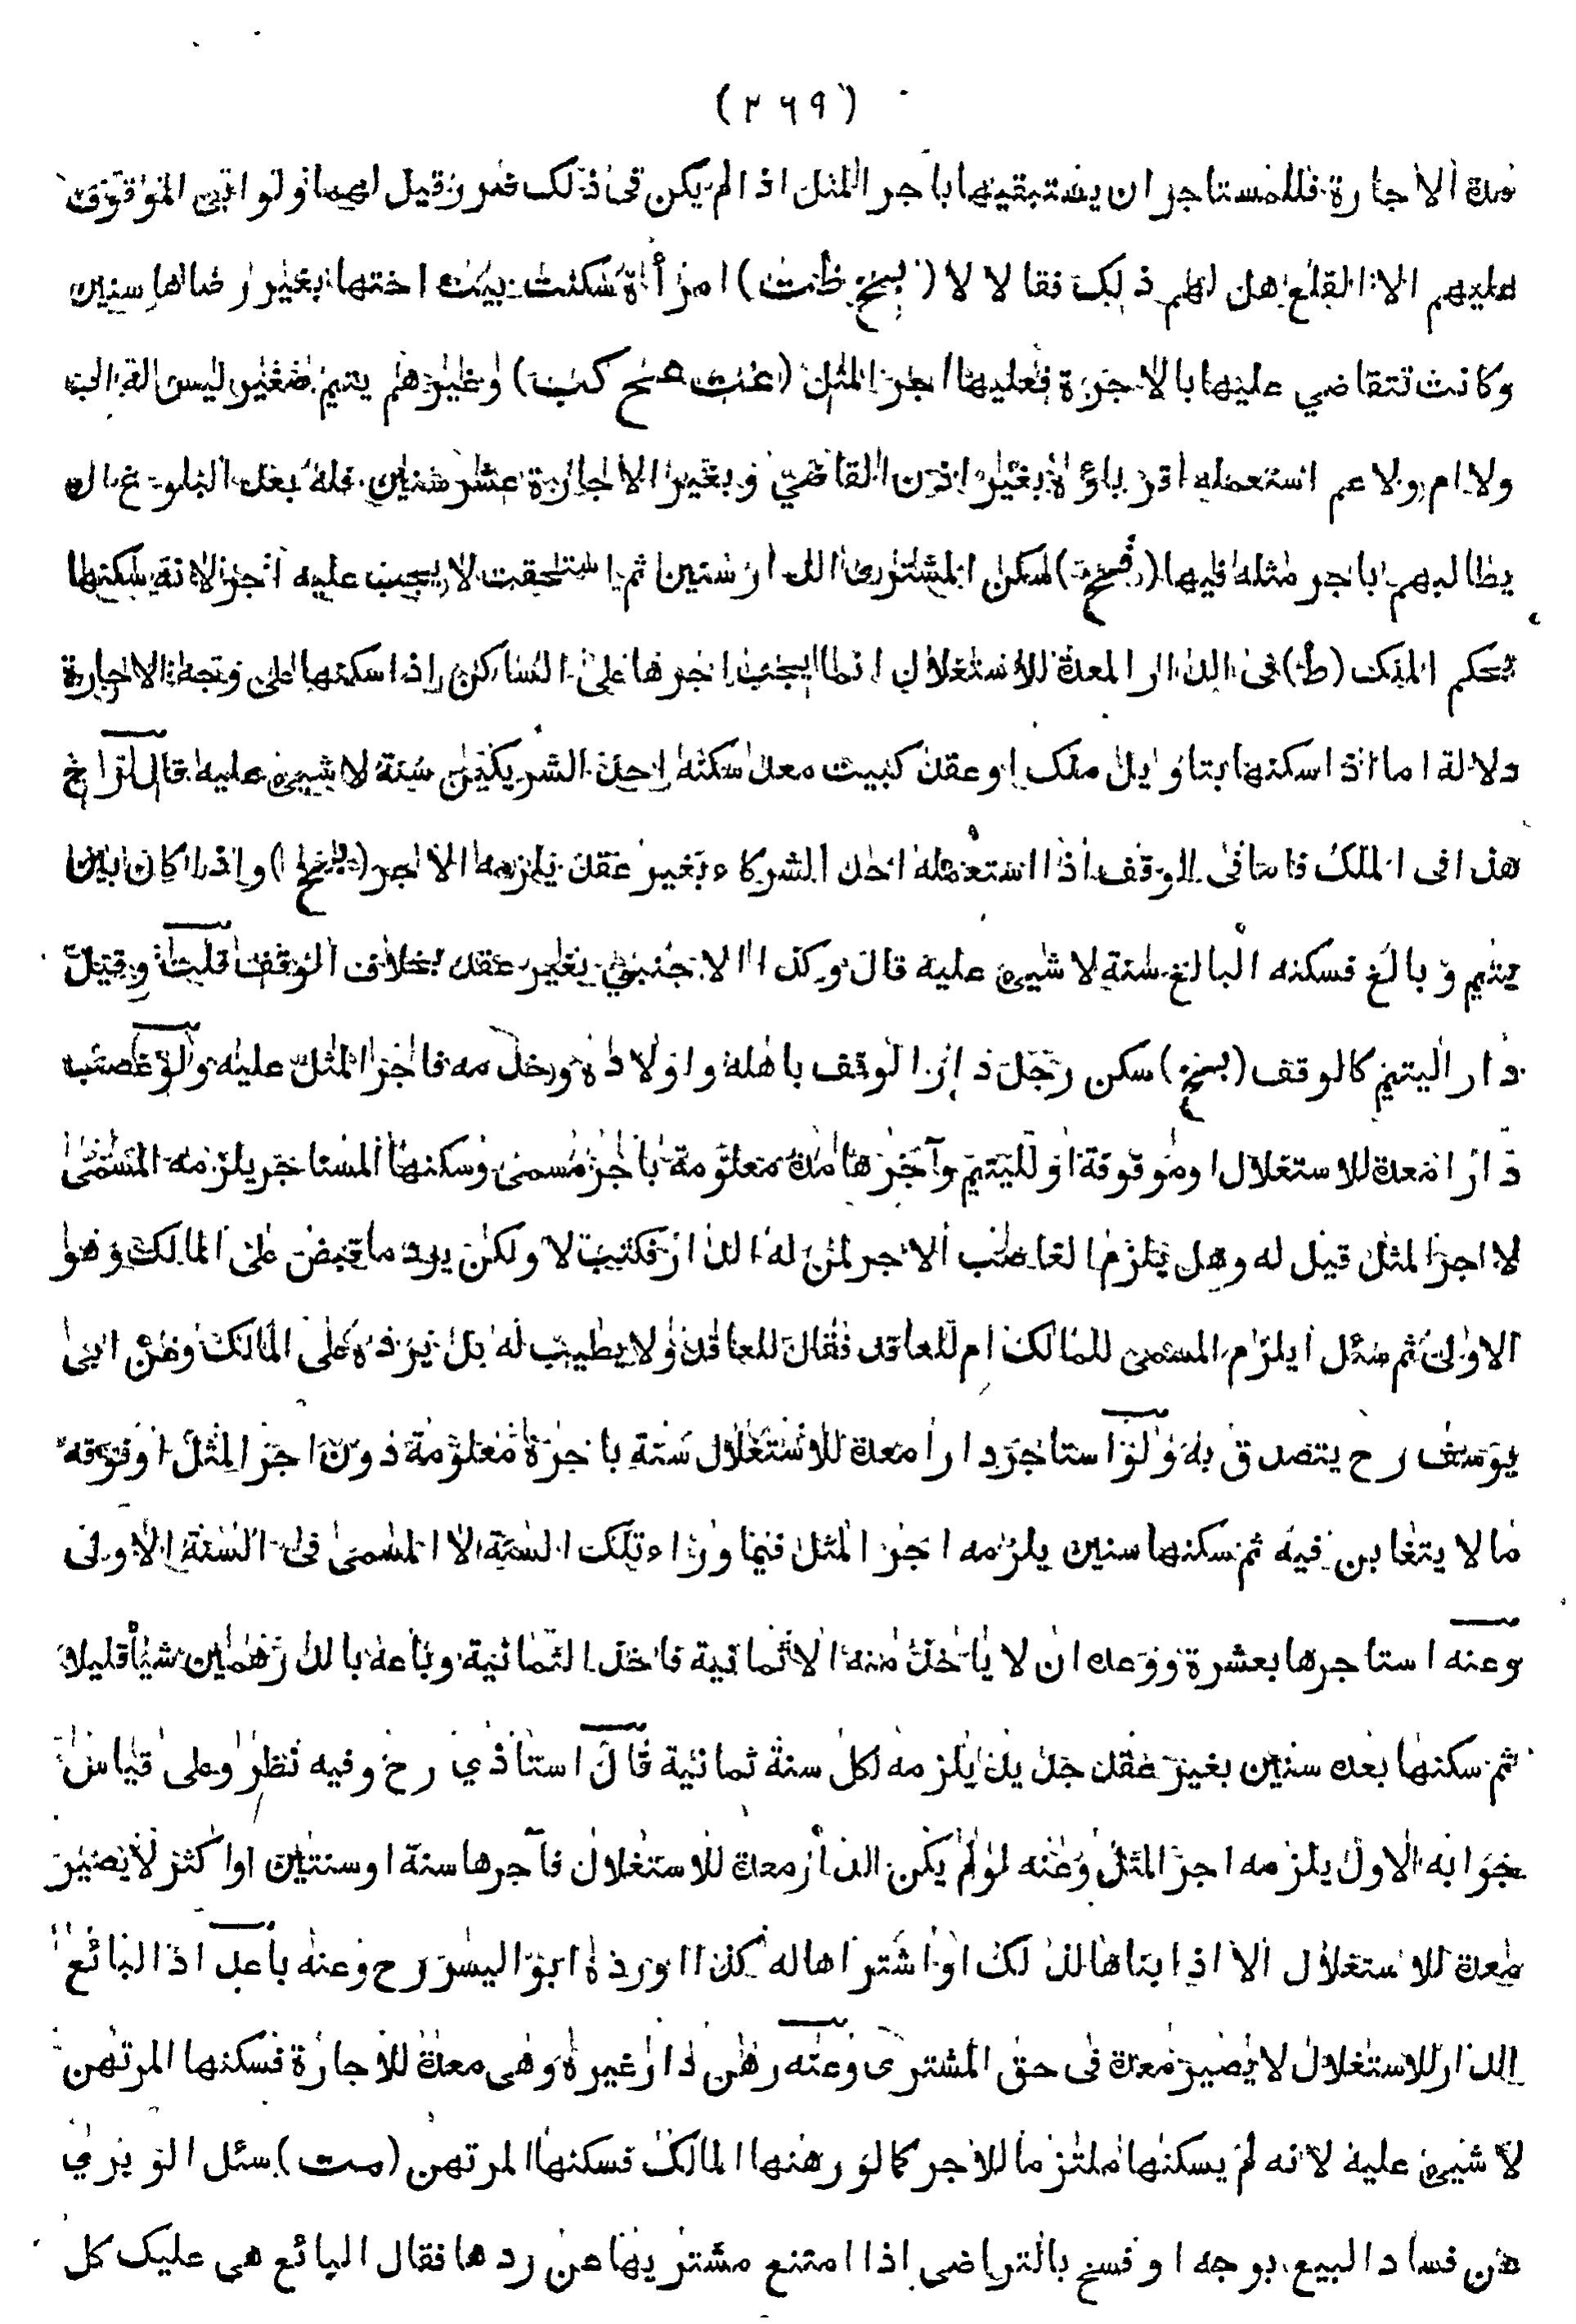 (٢٦٩)
مدة الاجارة فللمستاجر ان يستبقيها باجر المثل اذا لم يكن فى ذلك ضرر قيل لهما ولو ابى الموقوف
عليهم الا القلع هل لهم ذلك فقالا لا (بخ ظت) امرأة سكنت بيت اختها بغير رضاها سنين
وكانت تتقاضي عليها بالاجرة فعليها اجر المثل (عت صح كب) وغيرهم يتيم صغير ليس له اب
ولا ام ولا عم استعمله اقرباؤه بغير اذن القاضي و بغير الاجارة عشر سنين فله بعد البلوغ ان
يطالبهم باجر مثله فيها (فخ) سكن المشترى الدار سنين ثم استحقت لا يجب عليه اجر لانه سكنها
بحكم الملك (ط) فى الدار المعدة للاستغلال انما يجب اجرها على الساكن اذا سكنها على وجه الاجارة
دلالة اما اذا سكنها بتاويل ملك او عقد كبيت معد سكنه احد الشريكين سنة لا شيئ عليه قال
هذا فى الملك فاما فى الوقف اذا استعمله احد الشركاء بغير عقد يلزمه الاجر (بخ) واذا كان بين
يتيم و بالغ فسكنه البالغ سنة لا شيئ عليه قال وكذا الاجنبي بغير عقد بخلاف الوقف قلت وقيل
دار اليتيم كالوقف (بخ) سكن رجل دار الوقف باهله واولاده وخدمه فاجر المثل عليه ولو غصب
دارا معدة للاستغلال او موقوفة او لليتيم وآجرها مدة معلومة باجر مسمى وسكنها المستاجر يلزمه المسمى
لا اجر المثل قيل له وهل يلزم الغاصب الاجر لمن له الدار فكتب لا ولكن يرد ما قبض على المالك وهو
الاولى ثم سئل ايلزم المسمى للمالك ام للعاقد فقال للعاقد ولا يطيب له بل يرده على المالك وعن ابى
يوسف رح يتصدق به ولو استاجر دارا معدة للاستغلال سنة باجرة معلومة دون اجر المثل او فوقه
ما لا يتغابن فيه ثم سكنها سنين يلزمه اجر المثل فيما وراء تلك السنة لا المسمى فى السنة الاولى
وعنه استاجرها بعشرة ووعده ان لا ياخذ منه الا ثمانية فاخذ الثمانية وباعه بالدرهمين شيأ قليلا
ثم سكنها بعده سنين بغير عقد جديد يلزمه لكل سنة ثمانية قال استاذي رح وفيه نظر وعلى قياس
جوابه الاول يلزمه اجر المثل وعنه لو لم يكن الدار معدة للاستغلال فآجرها سنة او سنتين او اكثر لا يصير
معدة للاستغلال الا اذا بناها لذلك او اشتراها له كذا اورده ابو اليسر رح وعنه باعد اذا البائع
الدار للاستغلال لا يصير معدة فى حق المشترى وعنه رهن دار غيره وهى معدة للاجارة فسكنها المرتهن
لا شيئ عليه لانه لم يسكنها ملتزما للاجر كما لو رهنها المالك فسكنها المرتهن (مت) سئل الوبري
عن فساد البيع بوجه او فسخ بالتراضى اذا امتنع مشتريها عن ردها فقال البائع هى عليك كل